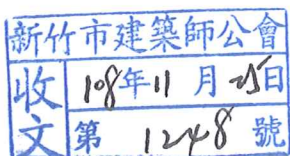 新竹市建築師公會
收文
108年11月25日
第1248號